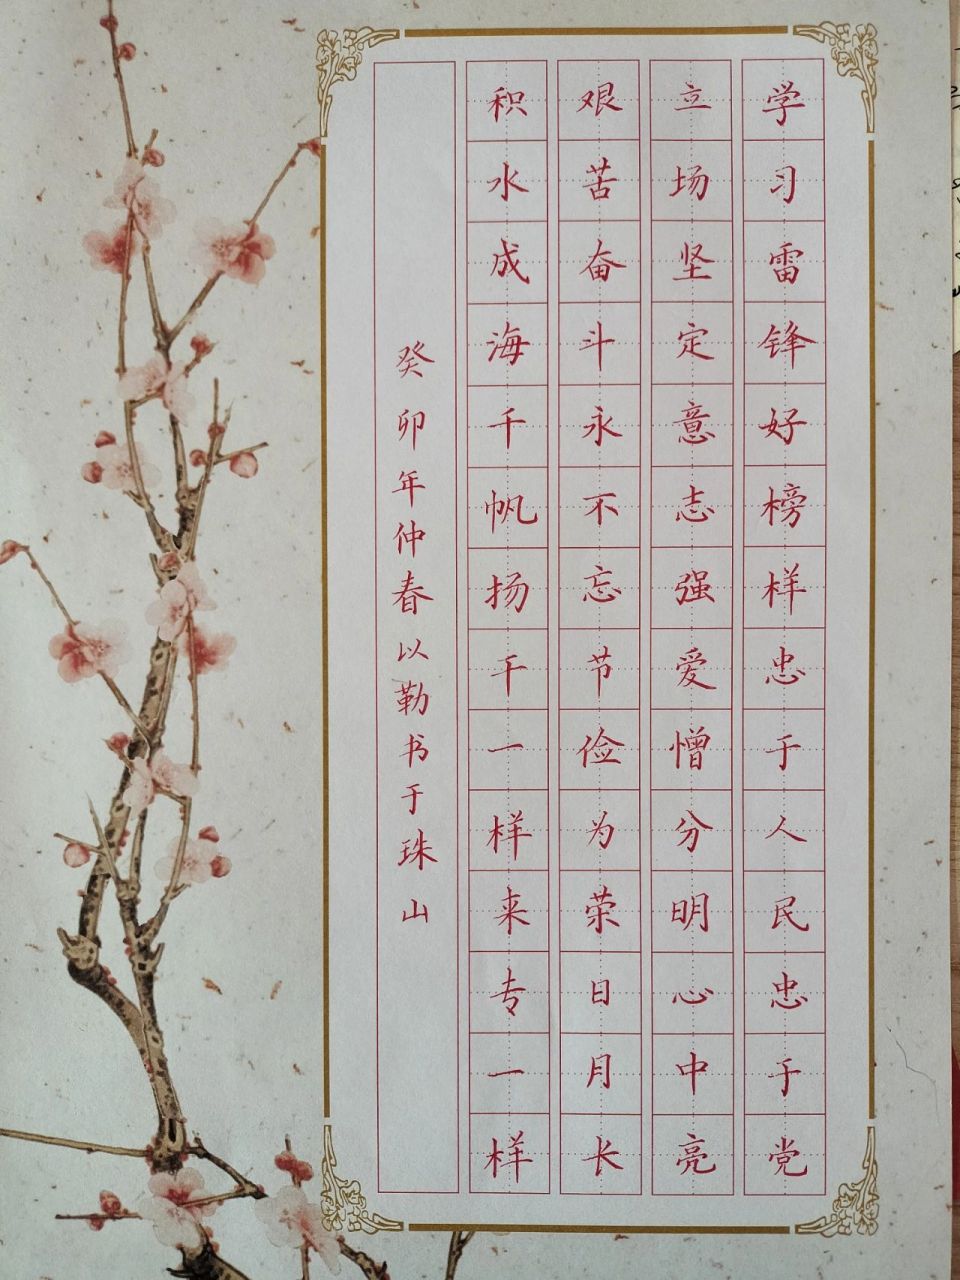 学习雷锋好榜样忠于人民忠于党
立场坚定意志强爱憎分明心中亮
艰苦奋斗永不忘节俭为荣日月长
积水成海千帆扬干一样来专一样
癸卯年仲春以勒书于珠山